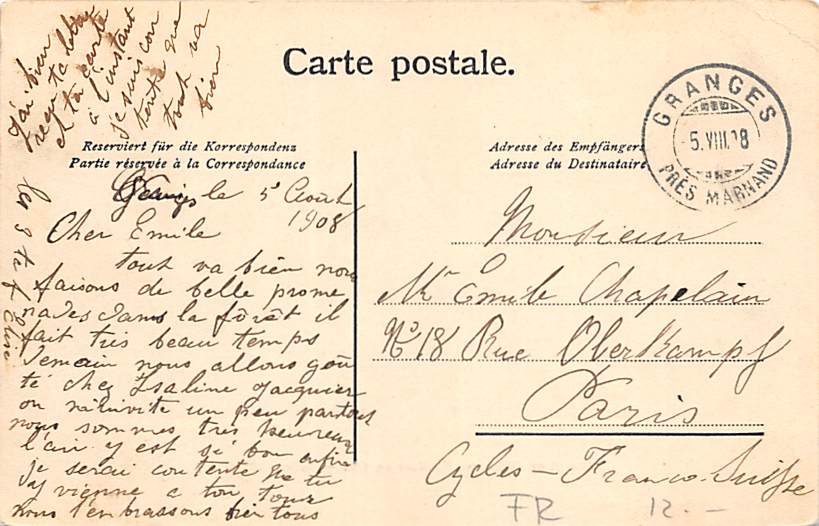 J'ai bien
reçu ta lettre
et ta carte
à l'instant
Je suis con
tente que
tout va
bien
Carte postale.
GRANGES
5.VIII.08
PRÈS MARNAND
Reserviert für die Korrespondenz
Partie réservée à la Correspondance
Adresse des Empfängers
Adresse du Destinataire
Granges le 5 Août
1908
Cher Emile
tout va bien nous
faisons de belle prome
nades dans la forêt il
fait très beau temps
demain nous allons goû
té chez Isaline Jacquier
on n'invite un peu partout
nous sommes très heureux
l'air y est si bon enfin
je serai contente que tu
y vienne a ton tour
nous t'embrassons bien tous
les 3 ta Elise
Monsieur
Mr Emile Chapelain
No 18 Rue Oberkampf
Paris
Cycles - Franco-Suisse
FR 12.-